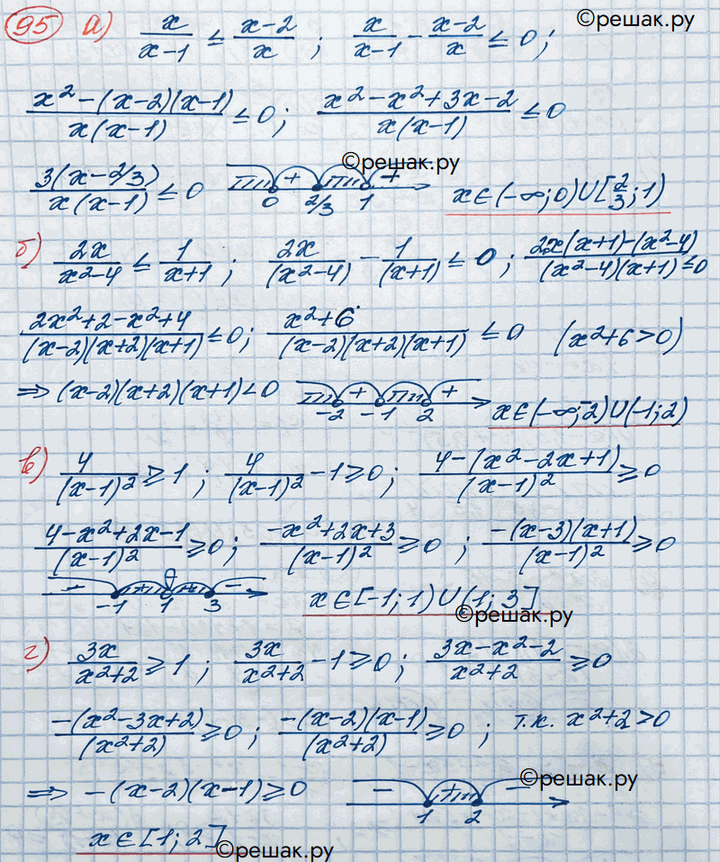 ©решак.ру
95 а) x/(x-1) ≤ (x-2)/x ; x/(x-1) - (x-2)/x ≤ 0;
(x² - (x-2)(x-1))/(x(x-1)) ≤ 0; (x² - x² + 3x - 2)/(x(x-1)) ≤ 0
©решак.ру
3(x - 2/3)/(x(x-1)) ≤ 0 + + 0 2/3 1 x∈(-∞;0)∪[2/3;1)
б) 2x/(x²-4) ≤ 1/(x+1) ; 2x/(x²-4) - 1/(x+1) ≤ 0 ; (2x(x+1)-(x²-4))/((x²-4)(x+1)) ≤ 0
(2x²+2-x²+4)/((x-2)(x+2)(x+1)) ≤ 0; (x²+6)/((x-2)(x+2)(x+1)) ≤ 0 (x²+6>0)
⇒ (x-2)(x+2)(x+1)<0 + + -2 -1 2 x∈(-∞;-2)∪(-1;2)
в) 4/(x-1)² ≥ 1 ; 4/(x-1)² - 1 ≥ 0 ; (4-(x²-2x+1))/(x-1)² ≥ 0
(4-x²+2x-1)/(x-1)² ≥ 0; (-x²+2x+3)/(x-1)² ≥ 0 ; -(x-3)(x+1)/(x-1)² ≥ 0
- + + - -1 1 3 x∈[-1;1)∪(1;3]
©решак.ру
г) 3x/(x²+2) ≥ 1 ; 3x/(x²+2) - 1 ≥ 0 ; (3x-x²-2)/(x²+2) ≥ 0
-(x²-3x+2)/(x²+2) ≥ 0 ; -(x-2)(x-1)/(x²+2) ≥ 0 ; т.к. x²+2>0
©решак.ру
⇒ -(x-2)(x-1) ≥ 0 - + - 1 2
x∈[1;2]
©решак.ру